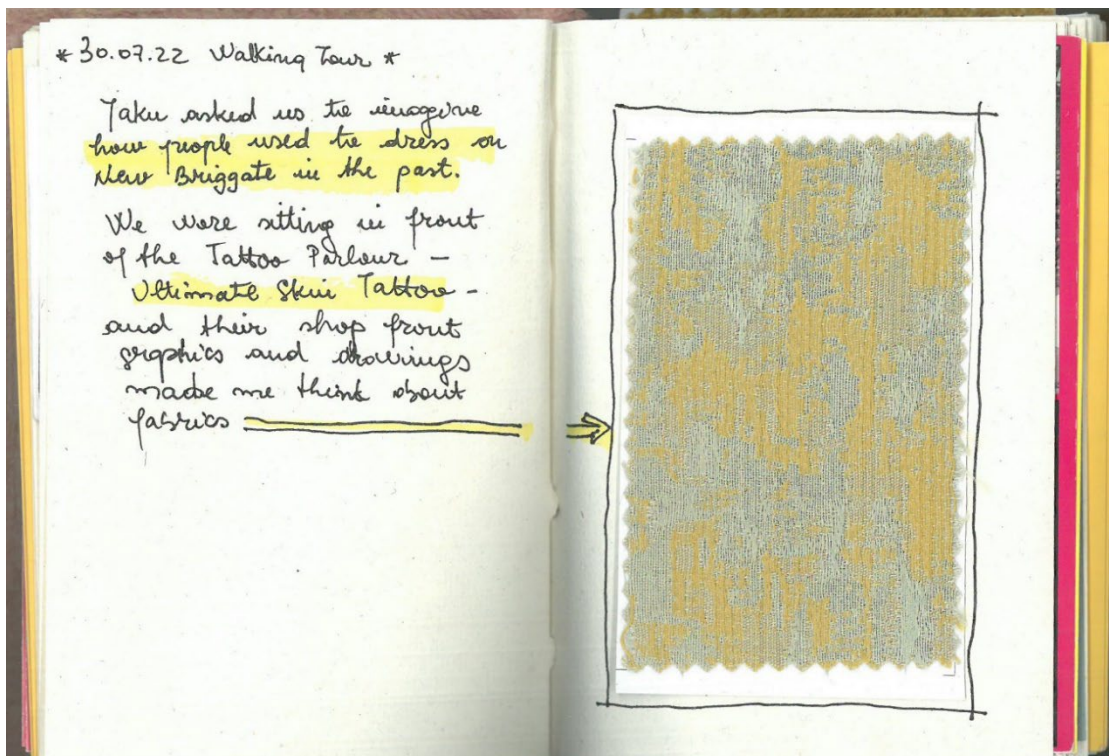 * 30.07.22 Walking Tour *
Yaku asked us to imagine
how people used to dress on
New Briggate in the past.
We were sitting in front
of the Tattoo Parlour –
Ultimate Skin Tattoo –
and their shop front
graphics and drawings
made me think about
fabrics